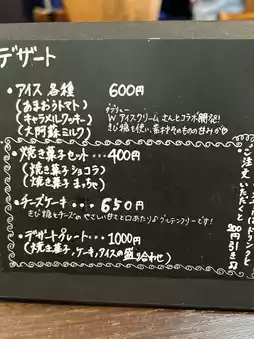 デザート
・アイス 各種 600円
(あまおうトマト)
(キャラメルクッキー)
(大阿蘇ミルク)
ダブリュー
W アイスクリーム さんとコラボ開発!
きび糖を使い、素材そのものの甘みが♡
・焼き菓子セット・・・400円
(焼き菓子ショコラ)
(焼き菓子 まっちゃ)
・チーズケーキ・・・650円
きび糖とチーズの やさしい甘さと口あたり♪グルテンフリーです!
・デザートプレート・・・1000円
(焼き菓子、ケーキ、アイスの盛り合わせ)
ご注文いただくと
200円引き